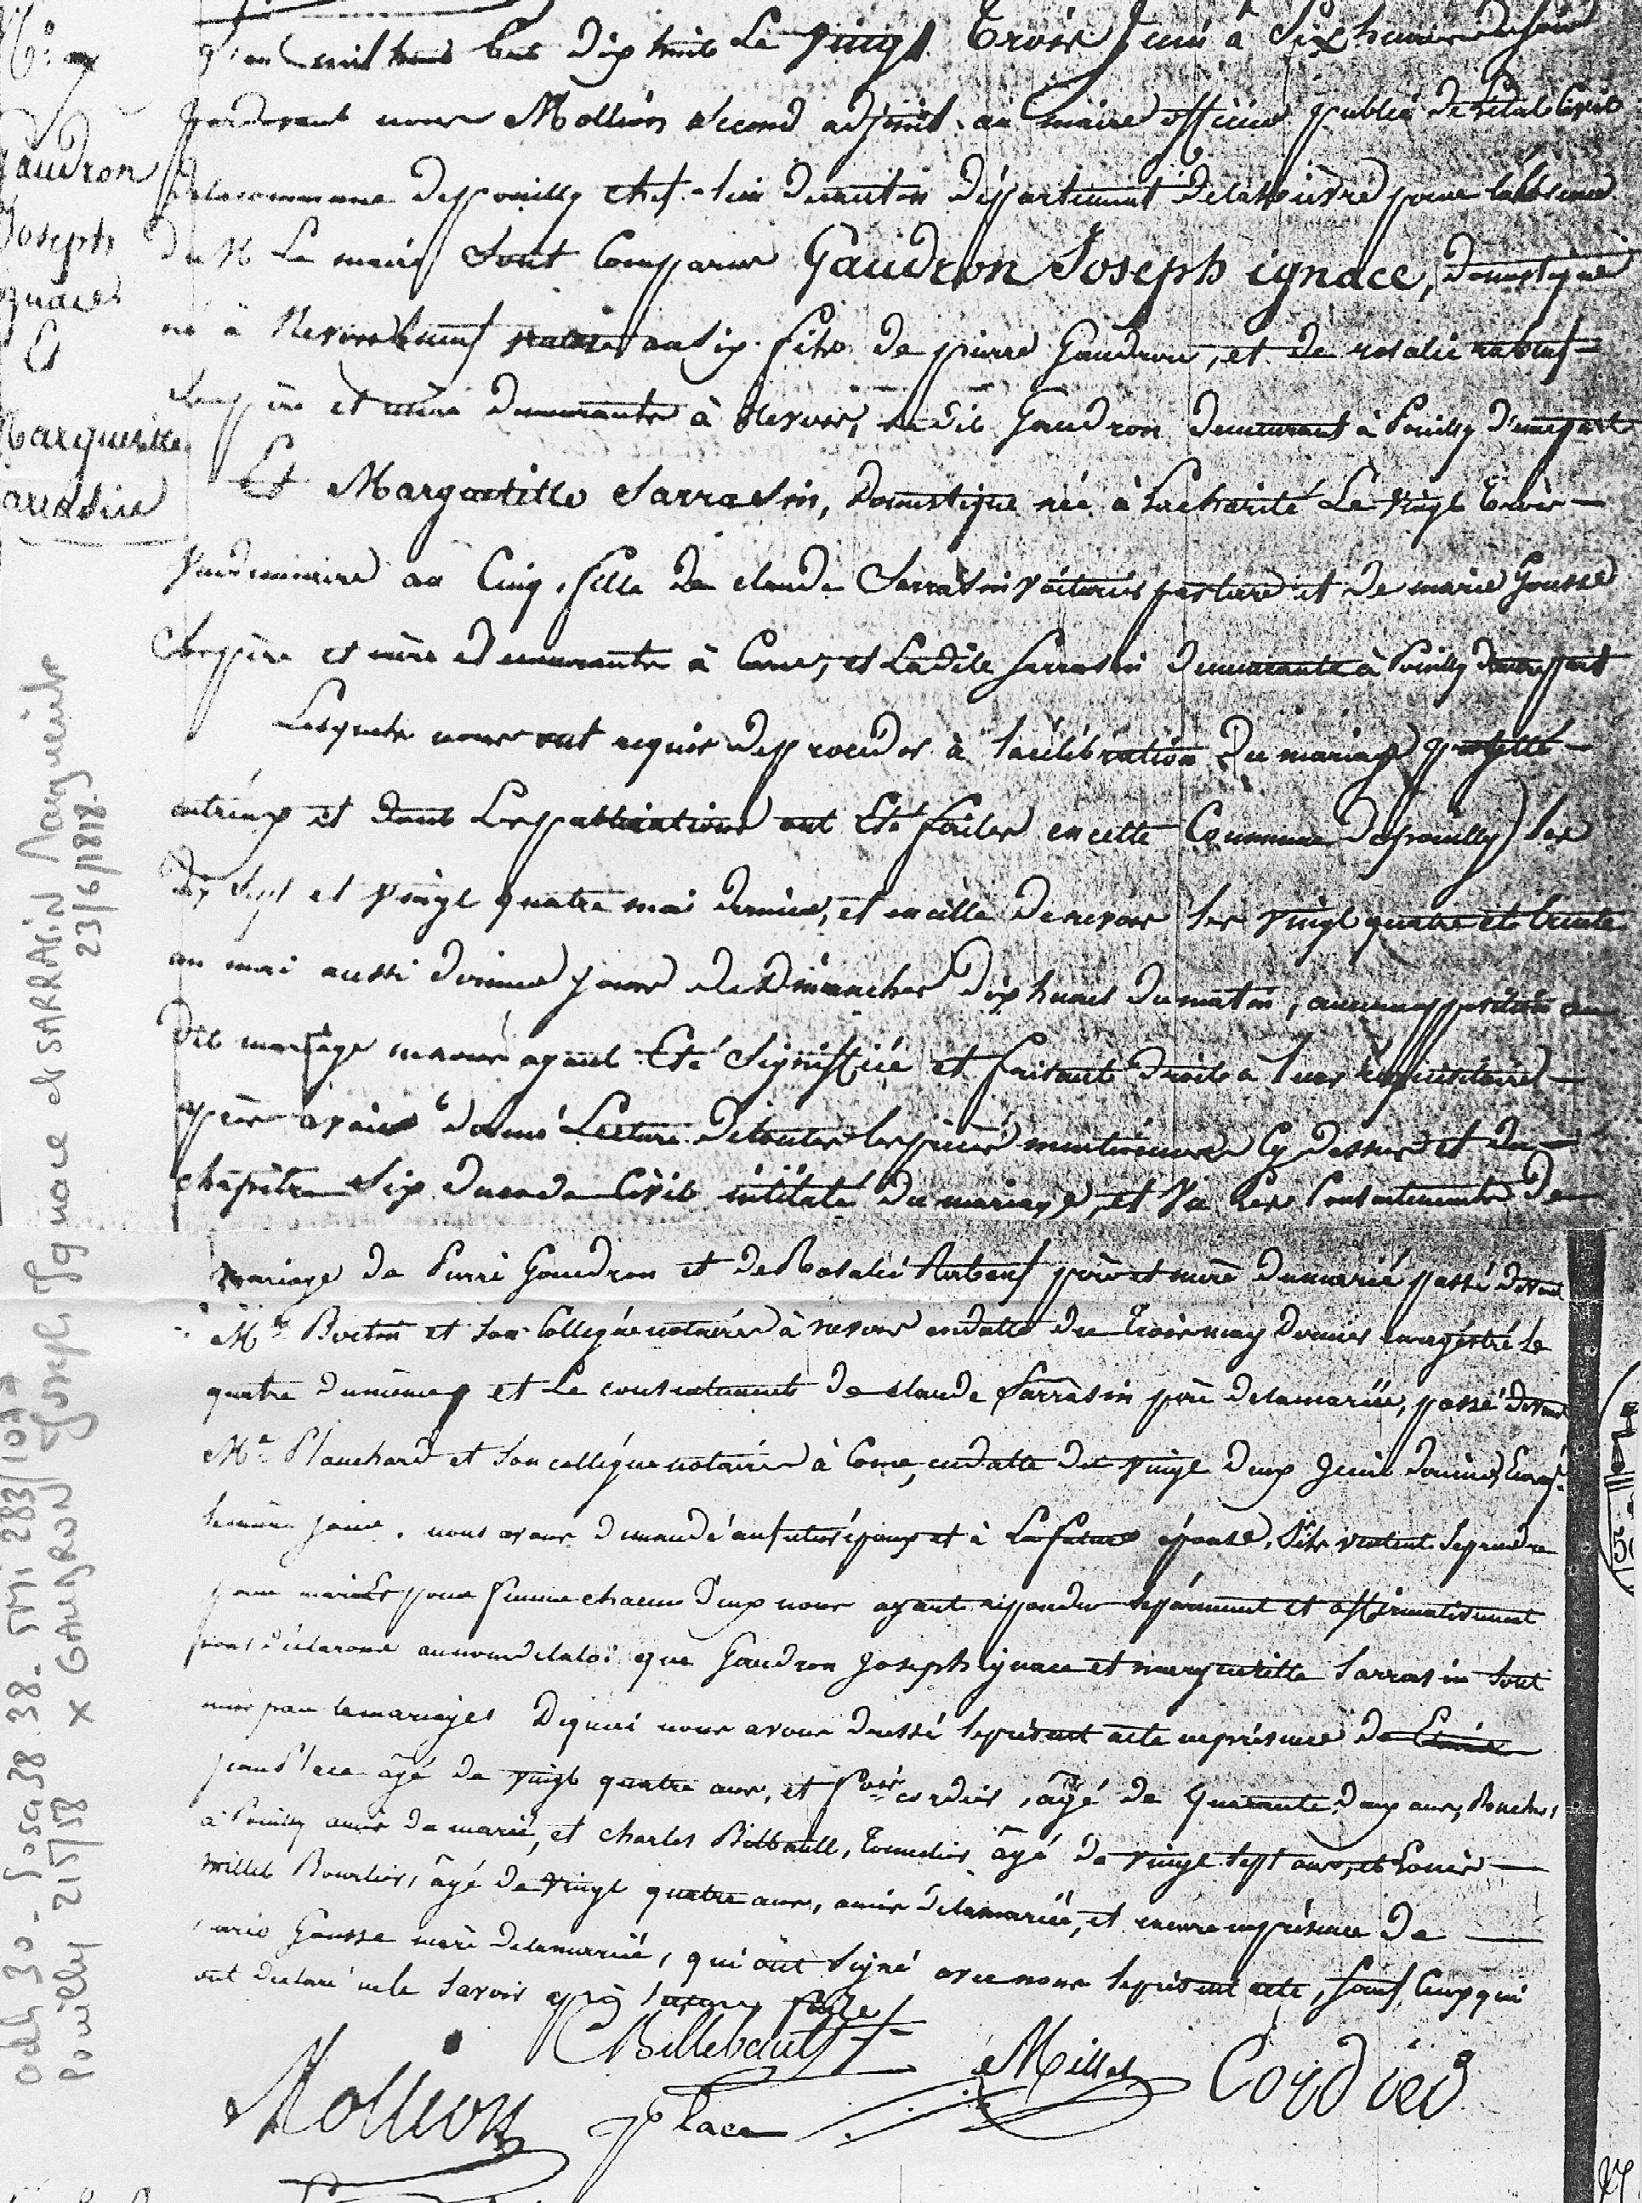 L'an mil huit cent dix huit Le vingt Trois Juin à Six heures du soir
pardevant nous Mollion second adjoint au maire officier public de l'état civil
de la commune de pouilly chef-lieu de canton département de la Nièvre pour l'absence
de M Le maire Sont Comparus Gaudron Joseph ignace, domestique
né à Nevers an Six fils de pierre Gaudron, et de rosalie
Ses père et mère demeurants à Nevers, le dit Gaudron demeurant à Pouilly d'une part
Et Margueritte Sarrasin, domestique née à Lacharité Le vingt Trois
Vendemiaire an Cinq, fille de claude Sarrasin voiturier par terre et de marie Gousse
Ses père et mère demeurants à Cosne, et Ladite Sarrasin demeurante à Pouilly d'autre part
Lesquels nous ont requis de proceder à la célébration du mariage projetté
entr'eux et dont Les publications ont Eté faites en cette Commune de pouilly les
dix Sept et vingt quatre mai dernier, et en celle de nevers les vingt quatre et trente
un mai aussi dernier jours de Dimanches dix heures du matin, aucune opposition au
dit mariage ne nous ayant Eté Signiffiée et faisant droit à leur requisitoire
après avoir donné Lecture de toutes les pièces mentionnées Cy dessus et du
chapitre Six du code Civil intitulé du mariage, et Vu les Consentements de
mariage de Pierre Gaudron et de Rosalie père et mère du marié passé devant
Me et Son Collegue notaires à nevers en datte du trois may dernier enregistré le
quatre du même et Le consentement de claude Sarrasin père de la mariée, passé devant
Me Planchard et Son collégue notaires à Cosne, en datte du vingt deux Juin dernier, Enreg.
le même jour. nous avons demandé au futur époux et à La future épouse, S'ils veulent se prendre
pour mari et pour femme chacun d'eux nous ayant repondu séparément et affirmativement
nous déclarons au nom de la loi que Gaudron Joseph ignace et margueritte Sarrasin sont
unis par le mariage. De quoi nous avons dressé le présent acte en présence de
Place âgé de vingt quatre ans, et cordier, âgé de quarante deux ans,
à Pouilly amis du marié, et charles Billbault, Tonnelier âgé de vingt sept ans, et Louis
millet Bourlier, âgé de vingt quatre ans, amis de la mariée, et encore en présence de
marie Gousse mère de la mariée, qui ont signé avec nous le présent acte, sauf Ceux qui
ont declaré ne le savoir après lecture faite
CBillebault
Mollion place Millet Cordier
Gaudron
Joseph
ignace
Et
Marguerite
Sarrasin
GAUDRON Joseph Ignace et SARRASIN Marguerite
Pouilly 21571/58 x
23/6/1818.